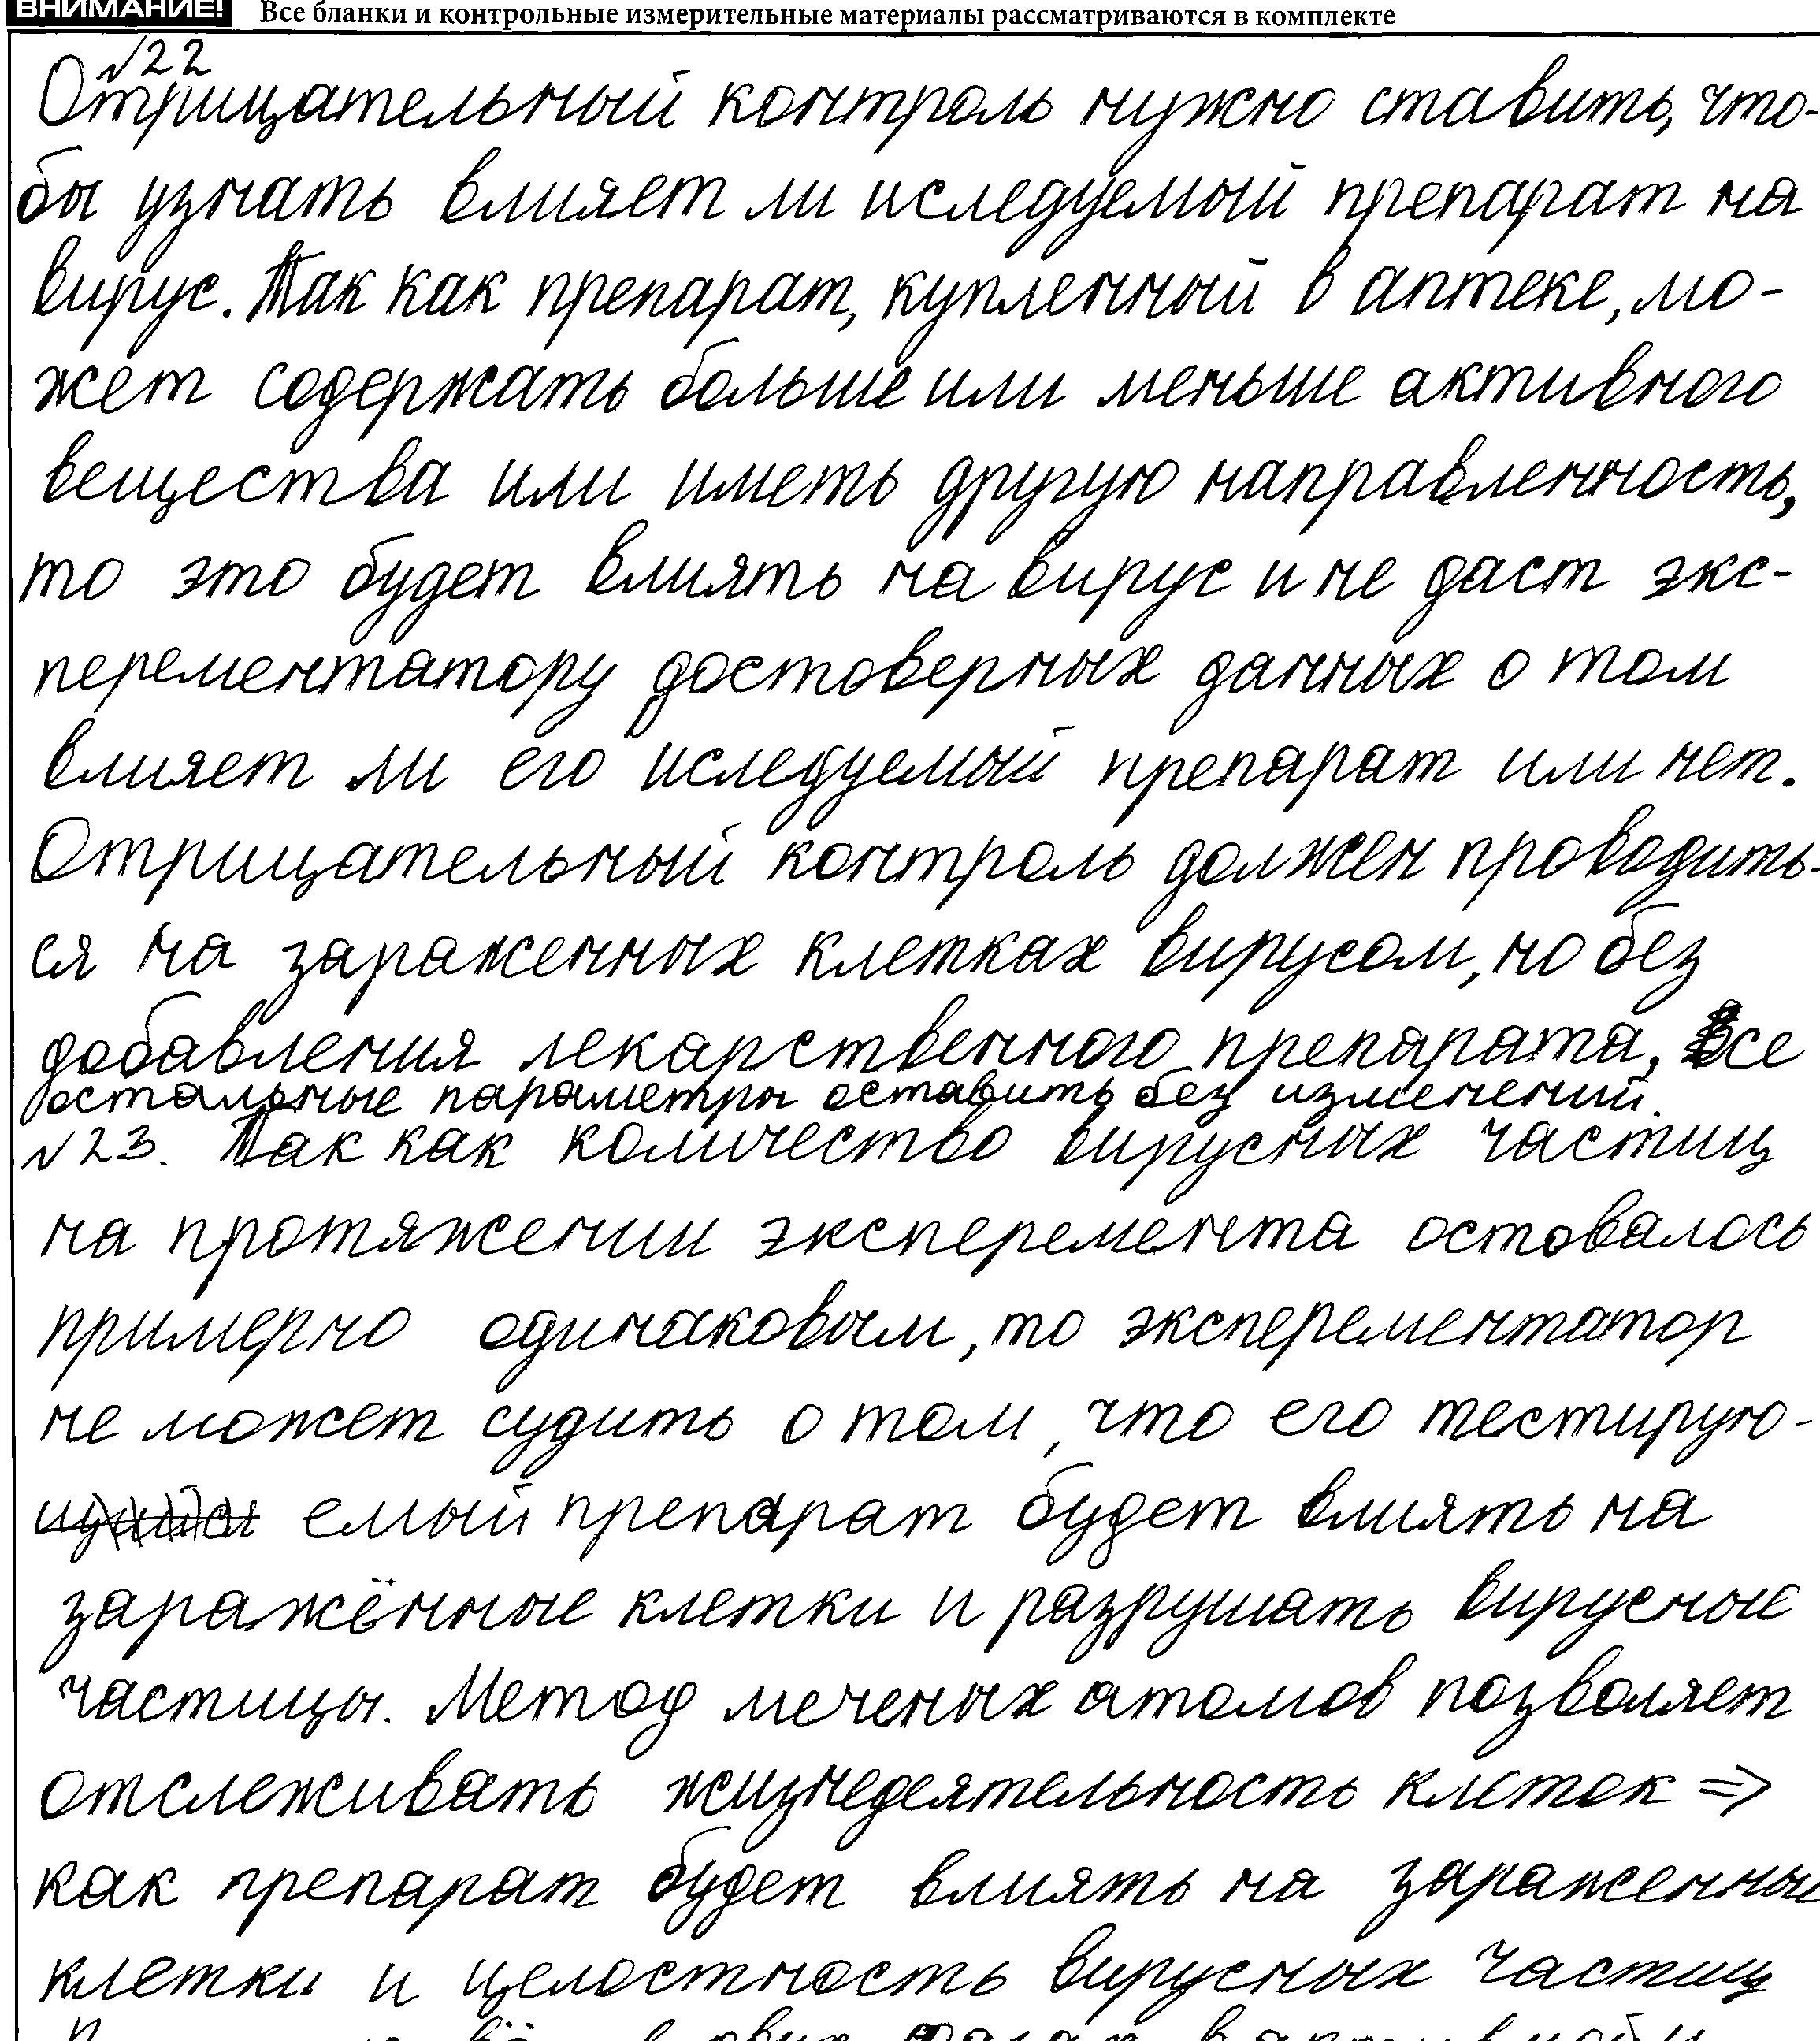 ВНИМАНИЕ! Все бланки и контрольные измерительные материалы рассматриваются в комплекте
№22
Отрицательный контроль нужно ставить, что-
бы узнать влияет ли иследуемый препарат на
вирус. Так как препарат, купленный в аптеке, мо-
жет содержать больше или меньше активного
вещества или иметь другую направленность,
то это будет влиять на вирус и не даст экс-
перементатору достоверных данных о том
влияет ли его иследуемый препарат или нет.
Отрицательный контроль должен проводить-
ся на зараженных клетках вирусом, но без
добавления лекарственного препарата, все
остальные параметры оставить без изменений.
№23. Так как количество вирусных частиц
на протяжении эксперемента остовалось
примерно одинаковым, то эксперементатор
не может судить о том, что его тестирую-
емый препарат будет влиять на
заражённые клетки и разрушать вирусные
частицы. Метод меченых атомов позволяет
отслеживать жизнедеятельность клеток =>
как препарат будет влиять на зараженные
клетки и целостность вирусных частиц